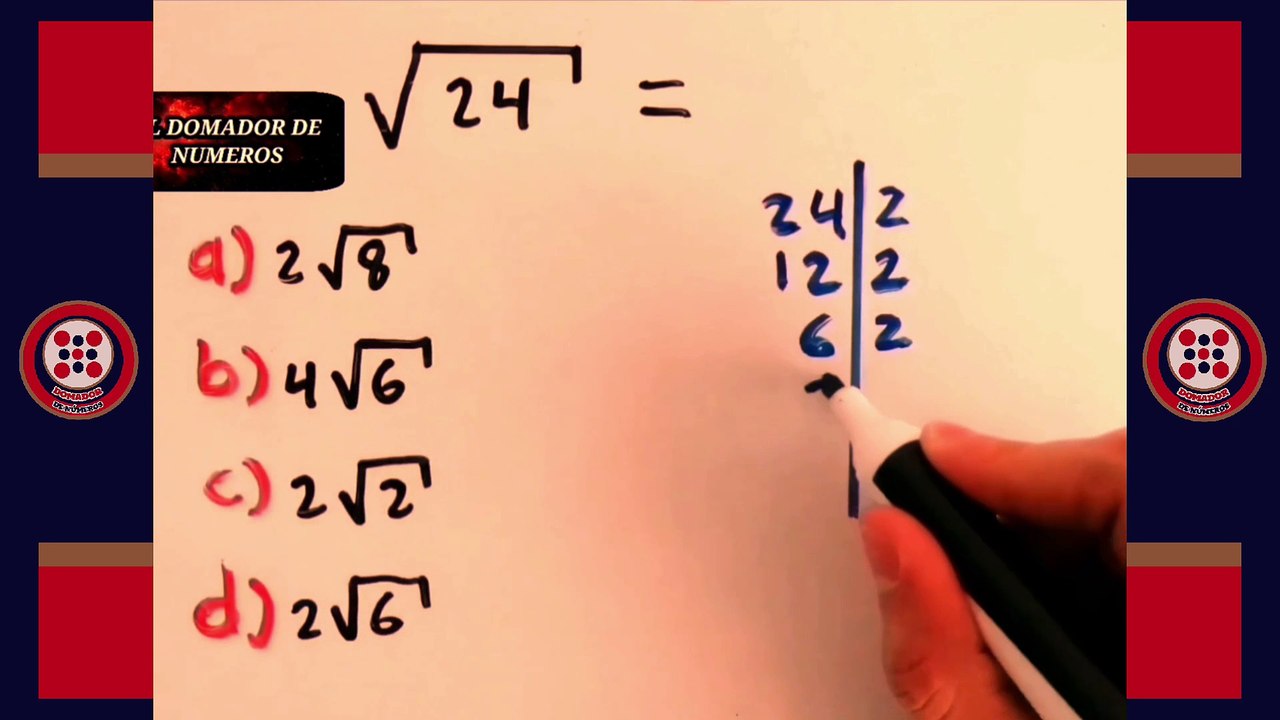 √24 =
L DOMADOR DE
NUMEROS
a) 2√8
b) 4√6
c) 2√2
d) 2√6
24 | 2
12 | 2
6 | 2
DOMADOR
DE NÚMEROS
DOMADOR
DE NÚMEROS